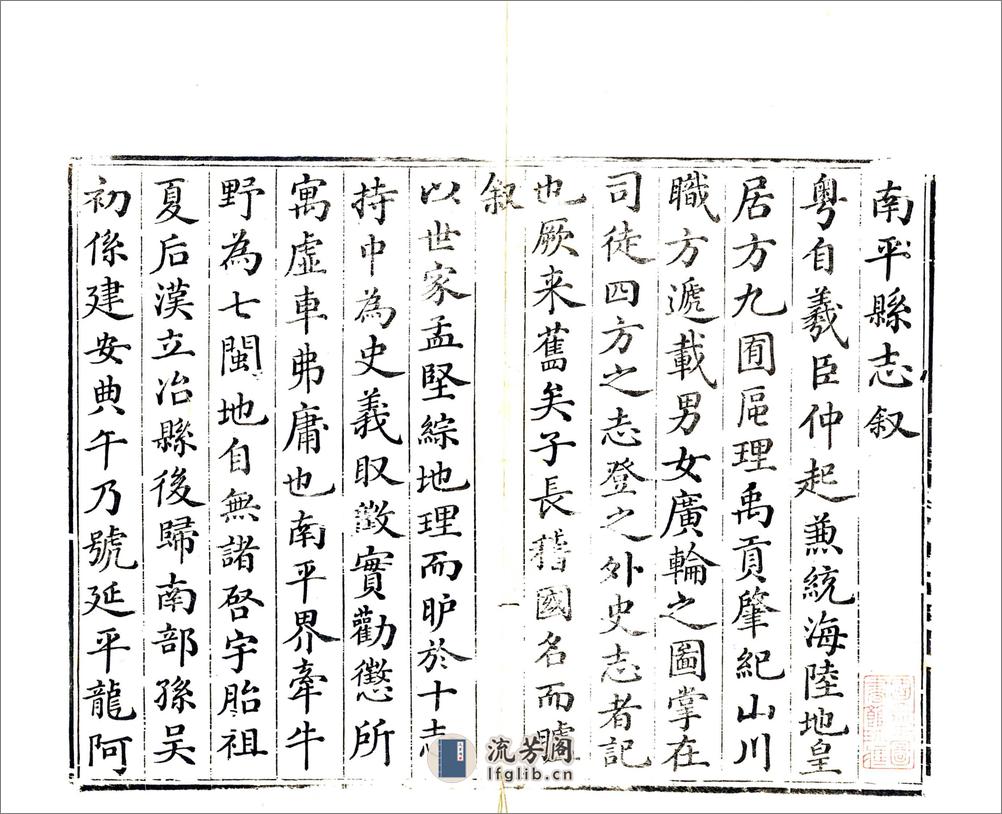 南平縣志叙
粵自羲臣仲起兼統海陸地皇
居方九囿區理禹貢肇紀山川
職方遞載男女廣輪之圖掌在
司徒四方之志登之外史志者記
也厥来舊矣子長稽國名而臚
叙
一
以世家孟堅綜地理而昈於十志
持中為史義取徵實勸懲所
寓虛車弗庸也南平界牽牛
野為七閩地自無諸啓宇胎祖
夏后漢立冶縣後歸南部孫吳
初係建安典午乃號延平龍阿
流芳閣
lfglib.cn